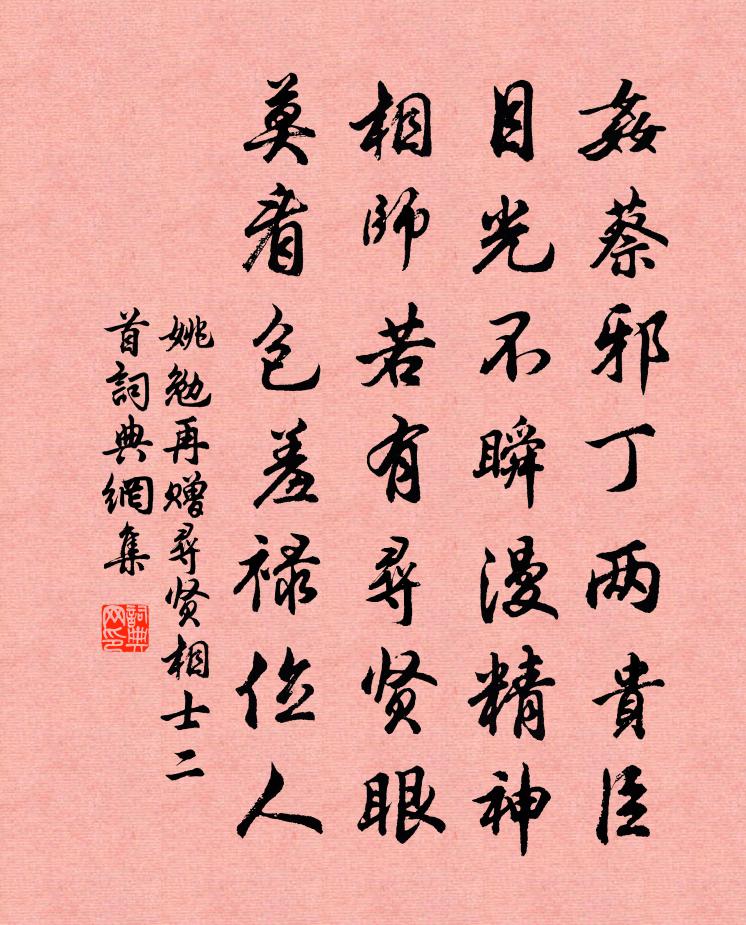 姦蔡邪丁两貴臣
目光不瞬漫精神
相師若有尋贤眼
莫看包羞禄位人
姚勉再赠尋贤相士二
首詞典網集
詞典
网印